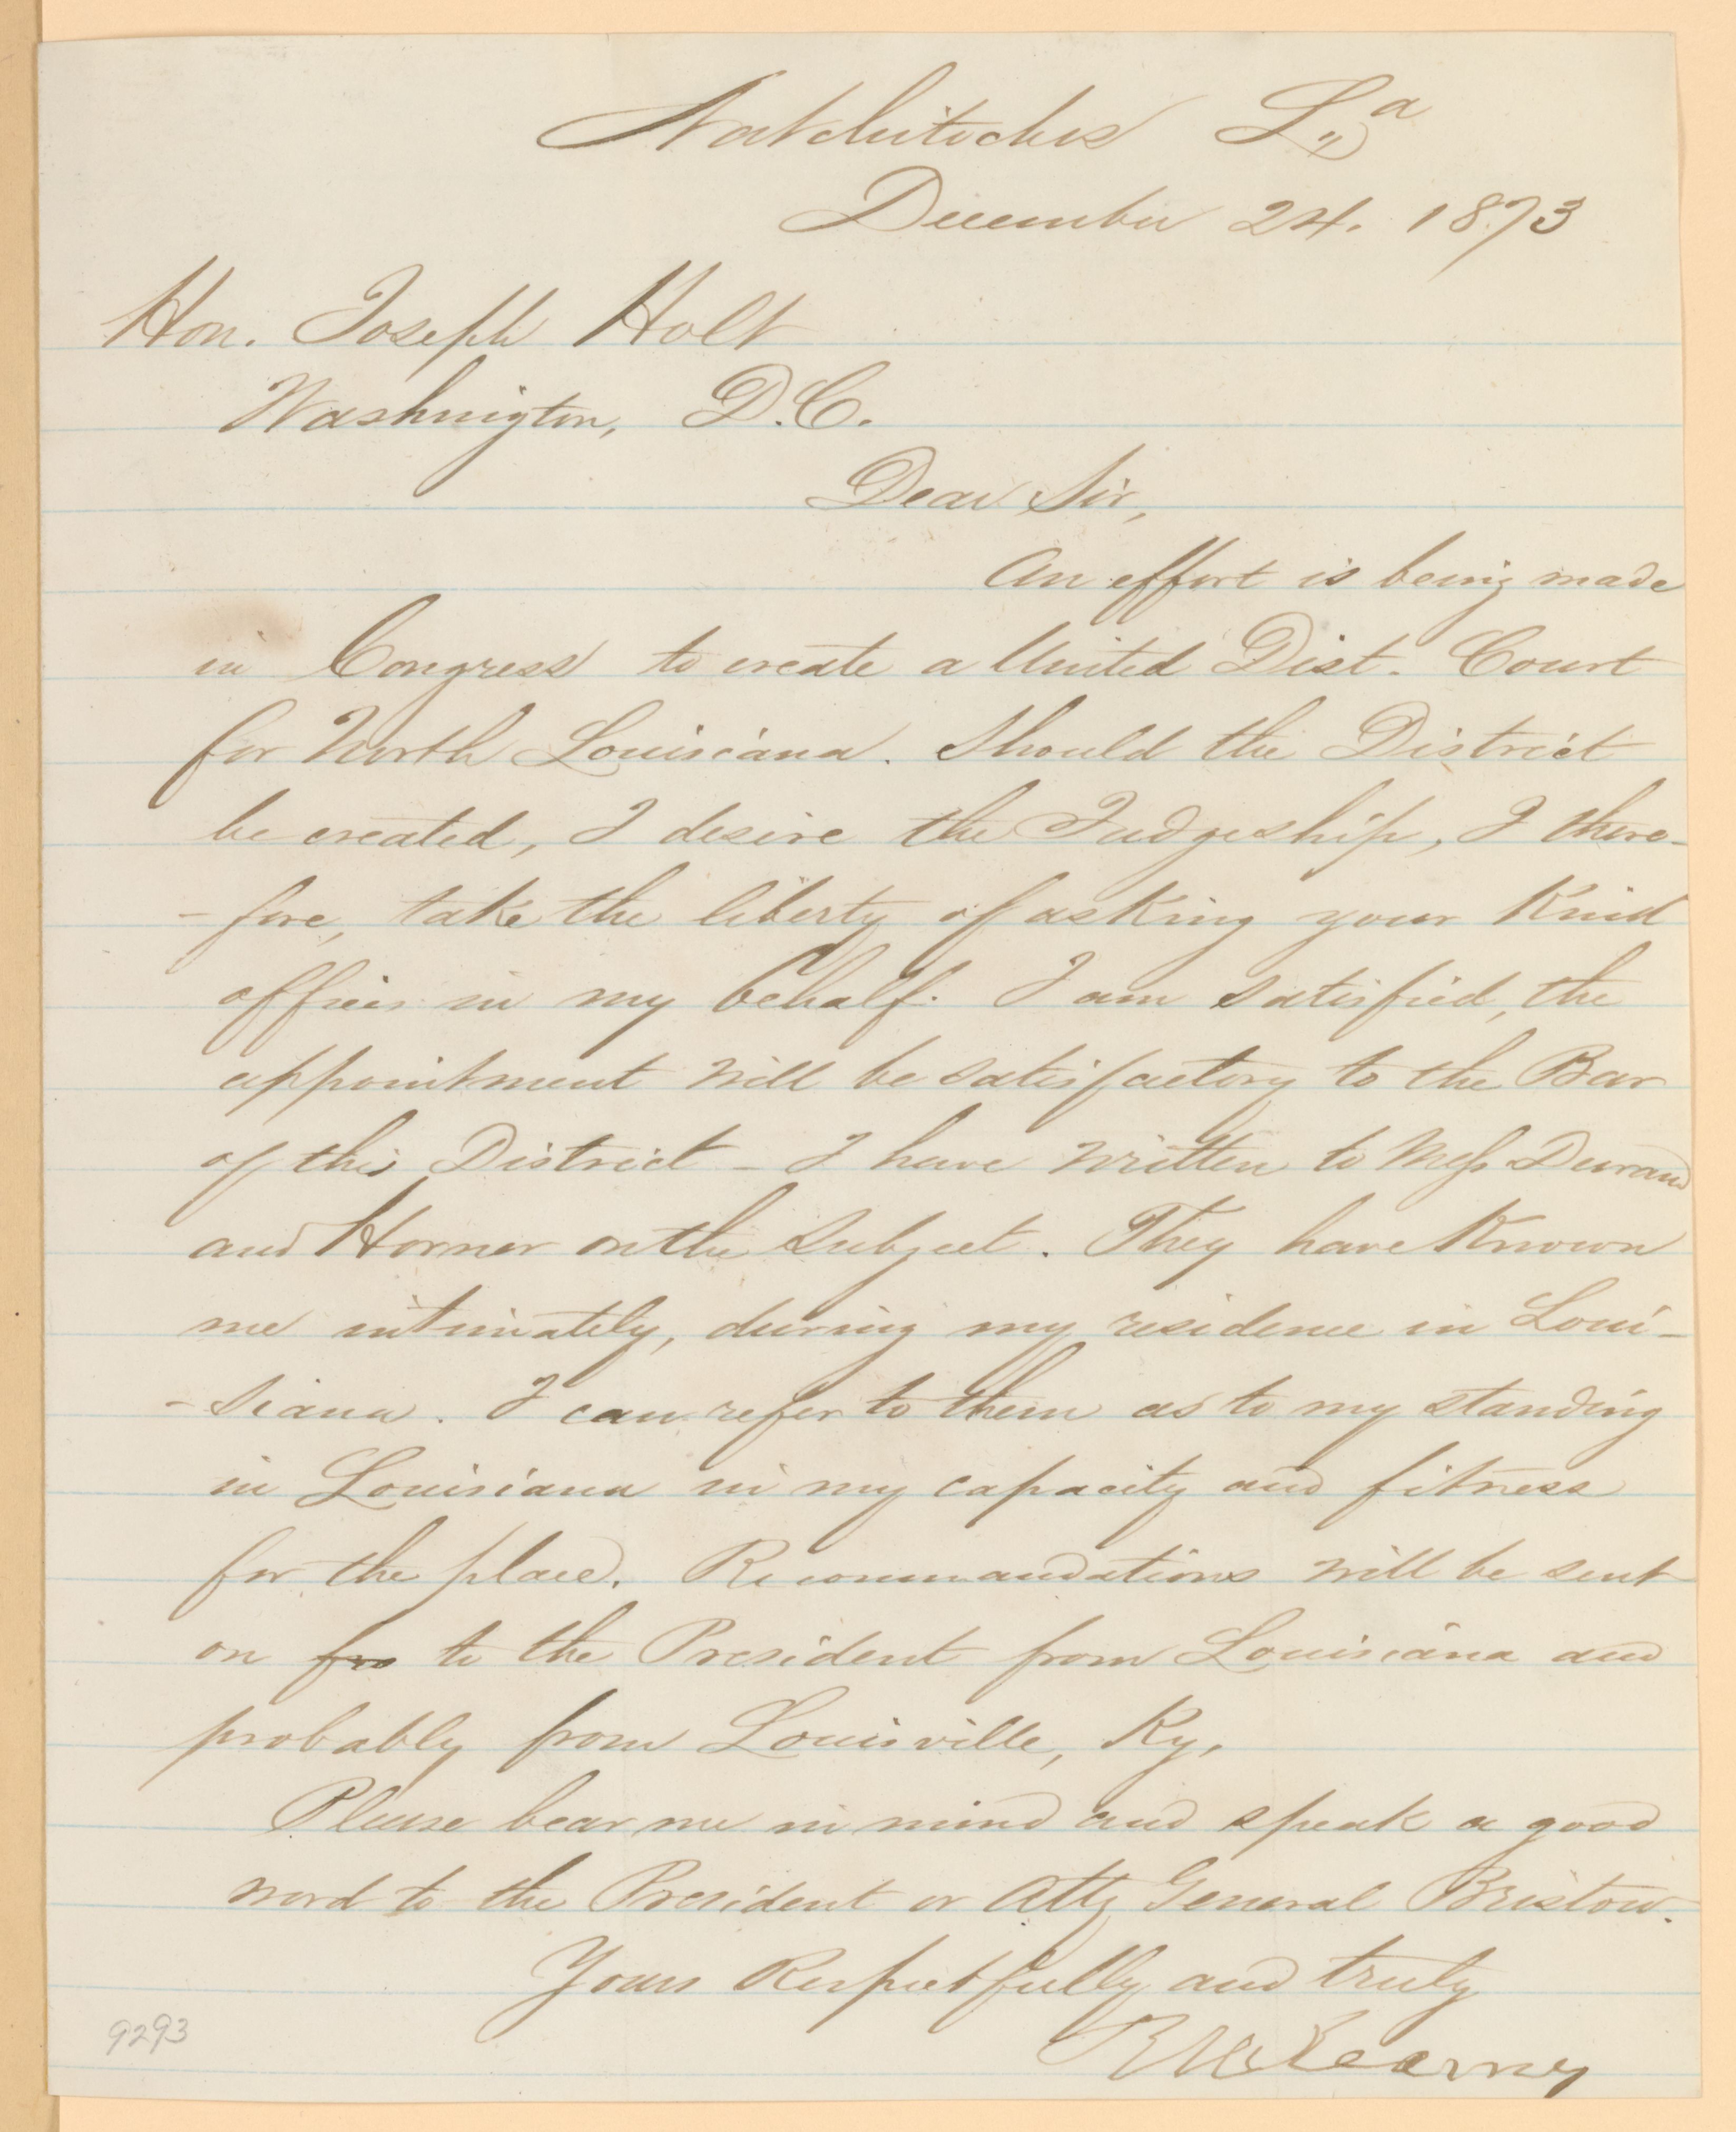 Natchitoches La
December 24. 1873
Hon. Joseph Holt
Washington, D.C.
Dear Sir,
An effort is being made
in Congress to create a United Dist. Court
for North Louisiana. Should the District
be created, I desire the Judgeship, I there-
-fore, take the liberty of asking your Kind
offices in my behalf. I am satisfied, the
appointment will be satisfactory to the Bar
of this District - I have written to Mess Durand
and Horner on the subject. They have Known
me intimately, during my residence in Loui-
-siana. I can refer to them as to my standing
in Louisiana in my capacity and fitness
for the place. Recommandations will be sent
on fro to the President from Louisiana and
probably from Louisville, Ky.
Please bear me in mind and speak a good
word to the President or Atty General Bristow.
Yours Respectfully and truly
Kearney
9293